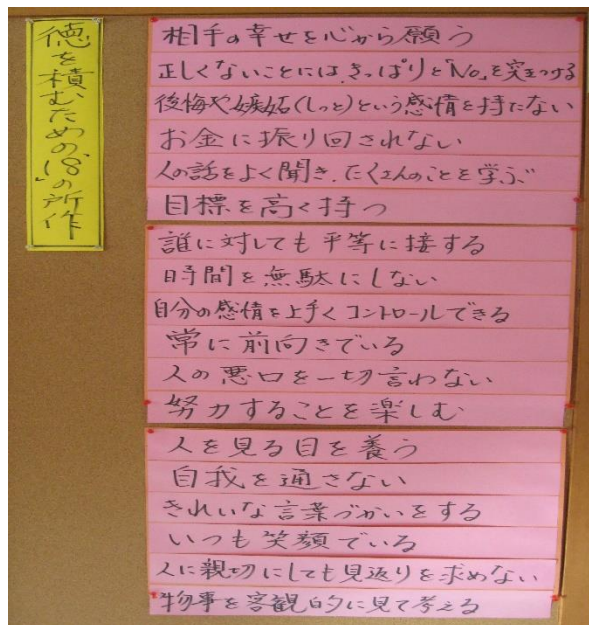 徳を積むための"18"の所作
相手の幸せを心から願う
正しくないことには、きっぱりと「No」を突きつける
後悔や嫉妬(しっと)という感情を持たない
お金に振り回されない
人の話をよく聞き、たくさんのことを学ぶ
目標を高く持つ
誰に対しても平等に接する
時間を無駄にしない
自分の感情を上手くコントロールできる
常に前向きでいる
人の悪口を一切言わない
努力することを楽しむ
人を見る目を養う
自我を通さない
きれいな言葉づかいをする
いつも笑顔でいる
人に親切にしても見返りを求めない
物事を客観的に見て考える